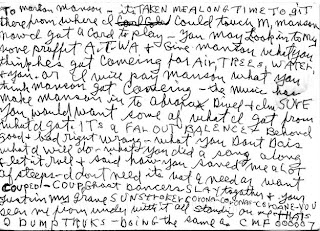 To marlon manson – its TAKEN ME A LONG TIME TO GIT
there from where I could touch M. manson
now I got a card to play – you may look into my
non proffit A.T.W.A & Give manson what you
think he's got coming for Air, TREES, WATER
& you. or I will pay manson what you
think manson got coming – the music has
make manson in to abraxas Devil & I'm SURE
you would want some of what I got from
what I got. IT'S A FAR OUT BALANCE – Behond
good & bad right wrong – what you Dont Do is
what I will do – what you did a sing along
& let it roll & said how you saved me a lot
of steps – I dont need it its not a need or want
Couped – COUP. Ghost dancers SLAY together & your
just in my grave SUNSTROKER CORONA-CORONA-CORONE-YOU
seen me from under with it all standing on me THAT'S
2 DUMPTRUKS – DOING the same as CMF 000007